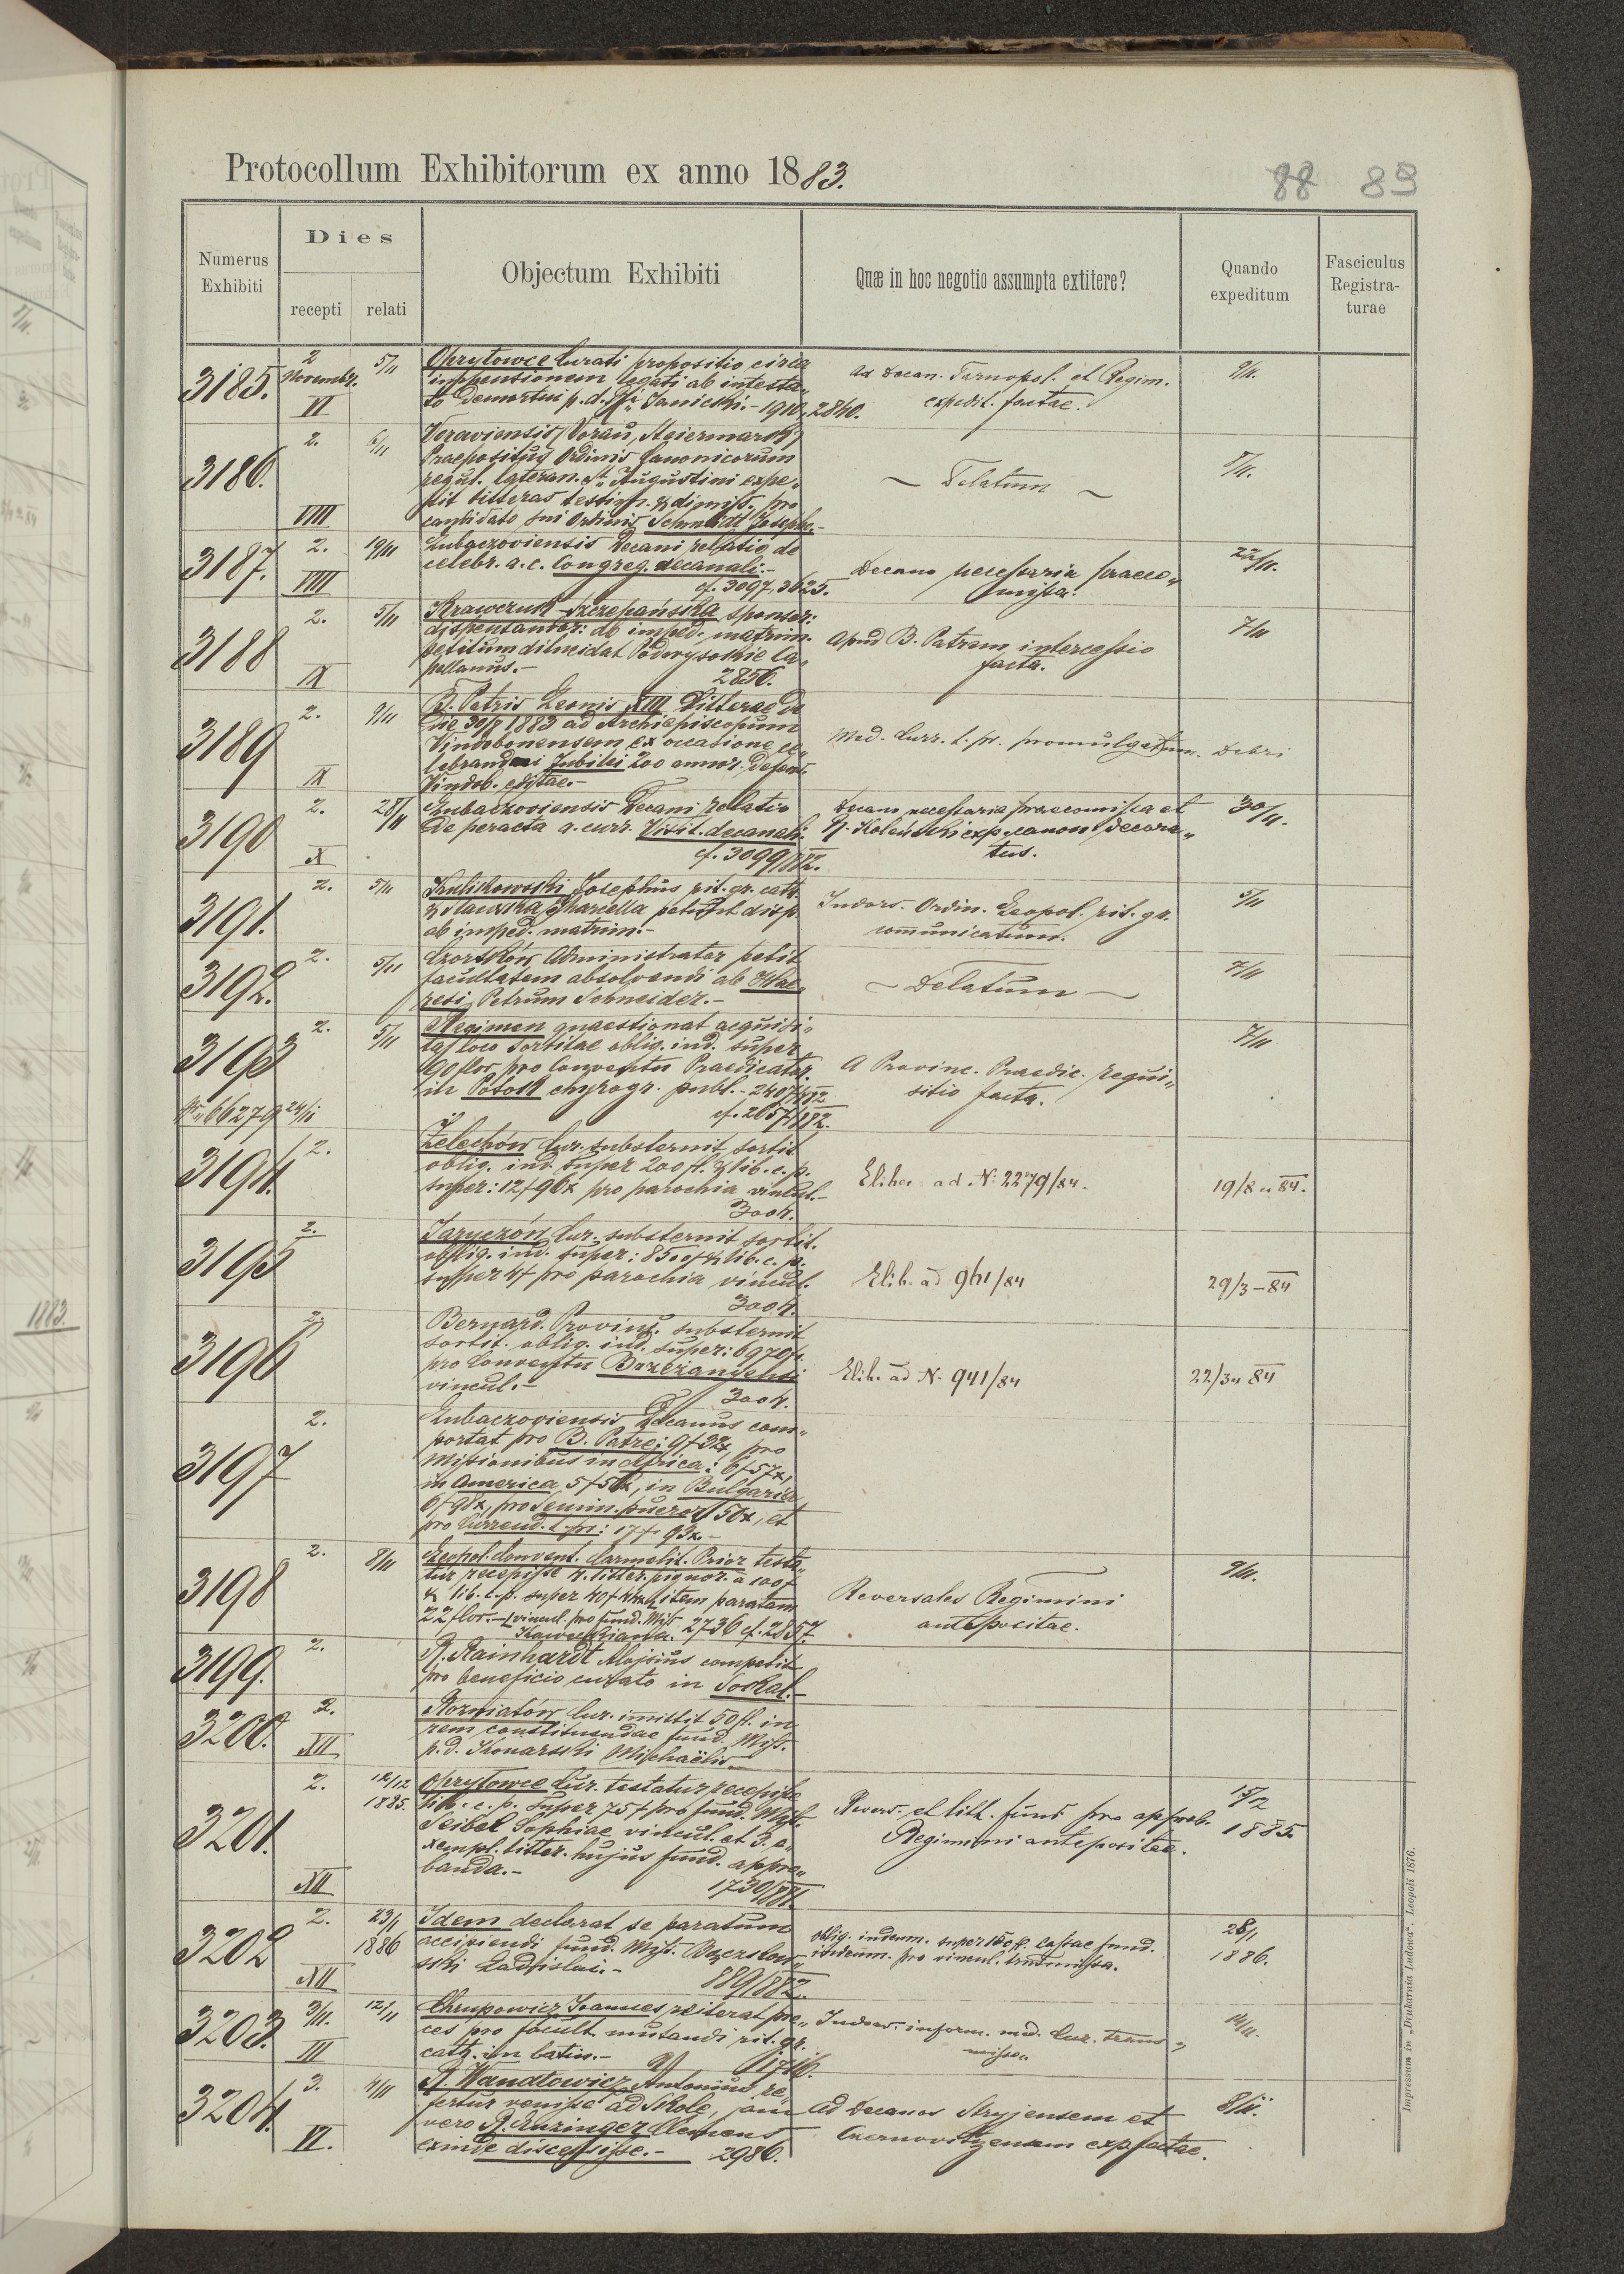 Protocollum Exhibitorum ex anno 1883.
88 89
Numerus Exhibiti
Dies
recepti relati
Objectum Exhibiti
Quæ in hoc negotio assumpta extitere?
Quando expeditum
Fasciculus Registra-
turae
3185.
2 Novembr.
VI
5/11
Oprytowce Curati propositio circa
impensionem legati ab intesta„
to demortui p. d. Janicki. - 1910, 2840.
Ad Decan. Tarnopol. et Regim.
expedit. factae.
9/11.
3186.
2.
VIII
6/11
Voraviensis (Vorau, Steiermark)
Praepositus Ordinis Canonicorum
regul. lateran. St. Augustini expe„
tit litteras testim. & dimiss. pro
candidato sui Ordinis Schmidt Josepho.-
~ Delatum ~
8/11.
3187.
2.
VIII
19/11
Lubaczoviensis Decani relatio de
celebr. a. c. Congreg. decanali.-
cf. 3097, 3625.
Decano necessaria praeco„
missa.
22/11.
3188
2.
IX
5/11
Krawczuk - Szczepańska sponsor:
dispensandor: ab imped. matrim.
petitum dilucidat Podwysokie Ca„
pellanus.-
2856.
Apud B. Patrem intercessio
facta.
7/11
3189
2.
IX
9/11
B. Patris Leonis XIII Litterae de
die 30/8 1883 ad Archiepiscopum
Vindobonensem ex occasione ce„
lebrandi Jubilei 200 annor. defens.
Vindob. editae.-
Med. Curr. l. pr. promulgatum.
3190
2.
X
28/11
Lubaczoviensis Decani relatio
de peracta a. curr. Visit. decanali.
cf. 3099/882.
Decano necessaria praecomissa et
R. Koleński exp. canon. decora„
tus.
30/11.
3191.
2.
5/11
Kulikowski Josephus rit. gr. cath.
& Marcella petunt disp.
ab imped. matrim.-
Indors. Ordin. Leopol. rit. gr.
communicatum.
5/11
3192.
2.
5/11
Czortków Administrator petit
facultatem absolvendi ab Hae„
resi Petrum Schneider.-
~ Delatum ~
7/11
3193
2.
66279 24/i
5/11
Regimen quaestionat acquisi„
tas loco sortitae oblig. ind. super
90 flor. pro Conventu Praedicator.
in Potok chyrogr. publ. - 2407/882
cf. 2657/882.
A Provinc. Praedic. requi„
sitio facta.
7/11
3194.
2.
Żelechów Cur. substernit sortit.
oblig. ind. super 200 fl. & lib. c. p.
super: 12 f 96 x pro parochia vincul.-
3004.
Eliber. ad N: 2279/84.
19/8 „ 84.
3195
2.
Jaryczów Cur. substernit sortit.
oblig. ind. super: 850 f & lib. c. p.
super 4 f pro parochia vincul.
3004.
Elib. ad 961/84
29/3 - 84
3196
2.
Bernard. Provinc. substernit
sortit. oblig. ind. super: 6970 f.
pro Conventu Brzeżanensi
vincul.-
3004.
Elib. ad N. 941/84
22/3 „ 84
3197
2.
Lubaczoviensis Decanus com„
portat pro B. Patre: 9 f 32 x, pro
Missionibus in Africa: 6 f 57 x,
in America 5 f 56 x, in Bulgaria
6 f 98 x, pro Semin. pueror. 50 x, et
pro Currend. l. pr: 17 f. 93 x.-
3198
2.
8/11
Leopol. Convent. Carmelit. Prior testa„
tur recepisse 4. litter. pignor. a 100 f
& lib. c. p. super 40 f 44 x item paratam
22 flor. - vincul. pro fund. Miss.
2736 cf. 2857.
Reversales Regimini
antepositae.
9/11.
3199.
2.
R. Rainhardt Alojsius competit
pro beneficio curato in Sokal.-
3200.
2.
XII
Rozniatów Cur. immittit 50 fl. in
rem constituendae fund. Miss.
p. d. Konarski Michaëlis.-
3201.
2.
XII
12/12
1885.
Oprytowce Cur. testatur recepisse
lib. c. p. super 75 f pro fund. Miss.
Seibel Sophiae vincul. et 3. e„
xempl. litter. hujus fund. appro„
banda.-
1730/881.
Revers. et litt. fund. pro approb.
Regimini antepositae.
15/12
1885.
3202
2.
XII
23/1
1886
Idem declarat se paratum
accipiendi fund. Miss.
Ladislai.-
889/882.
oblig. indemn. super 150 fl. cassae fund.
indemn. pro vincul. transmissa.
28/1
1886.
3203.
3/11.
III
12/11
Chrupowicz Joannes reiterat pre„
ces pro facult. mutandi rit. gr.
cath. in latin.-
1716.
Indors. inform. med. Cur. trans„
missa.
14/11.
3204.
3.
VI.
4/11
R. Wandtowicz Antonius re„
fertur venisse ad Skole, jam
vero R. Enzinger Clemens
exinde discessisse.- 2986.
Ad Decanos Stryjensem et
Czernovitzensem exp. factae.
8/11.
Impressum in „Drukarnia Ludowa“. Leopoli 1876.
1883.